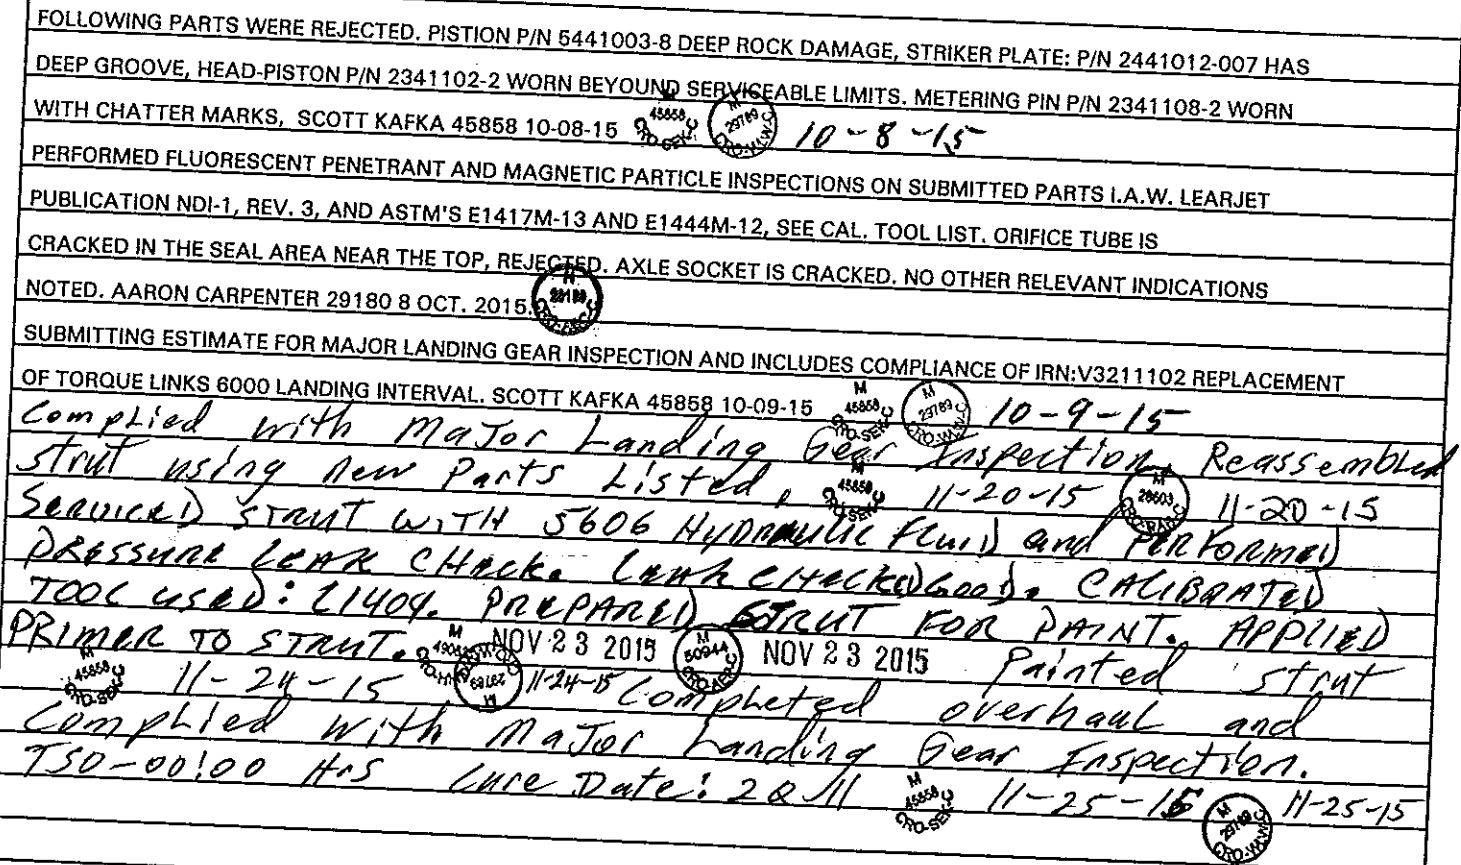 FOLLOWING PARTS WERE REJECTED. PISTION P/N 5441003-8 DEEP ROCK DAMAGE, STRIKER PLATE: P/N 2441012-007 HAS
DEEP GROOVE, HEAD-PISTON P/N 2341102-2 WORN BEYOUND SERVICEABLE LIMITS. METERING PIN P/N 2341108-2 WORN
WITH CHATTER MARKS, SCOTT KAFKA 45858 10-08-15 M 45858 CRO-SEK-C M 29789 CRO-W.W.C 10-8-15
PERFORMED FLUORESCENT PENETRANT AND MAGNETIC PARTICLE INSPECTIONS ON SUBMITTED PARTS I.A.W. LEARJET
PUBLICATION NDI-1, REV. 3, AND ASTM'S E1417M-13 AND E1444M-12, SEE CAL. TOOL LIST. ORIFICE TUBE IS
CRACKED IN THE SEAL AREA NEAR THE TOP, REJECTED. AXLE SOCKET IS CRACKED. NO OTHER RELEVANT INDICATIONS
NOTED. AARON CARPENTER 29180 8 OCT. 2015. 29180
SUBMITTING ESTIMATE FOR MAJOR LANDING GEAR INSPECTION AND INCLUDES COMPLIANCE OF IRN:V3211102 REPLACEMENT
OF TORQUE LINKS 6000 LANDING INTERVAL. SCOTT KAFKA 45858 10-09-15 M 45858 CRO-SEK-C M 29789 CRO-W.W.C 10-9-15
Complied with Major Landing Gear Inspection. Reassembled
strut using new Parts Listed. M 45858 CRO-SEK-C 11-20-15 M 28603 CRO-RAH-C 11-20-15
Serviced STRUT WITH 5606 Hydraulic Fluid and Performed
PRESSURE LEAK CHECK. Leak checked Good. CALIBRATED
TOOL USED: L1409. PREPARED STRUT FOR PAINT. APPLIED
PRIMER TO STRUT. M NOV 23 2015 M 50944 NOV 23 2015 Painted strut
M 45858 CRO-SEK-C 11-24-15 M 29789 11-24-15 Completed overhaul and
Complied with Major Landing Gear Inspection.
TSO-00:00 Hrs Cure Date: 2Q11 M 45858 CRO-SEK-C 11-25-15 M 29789 CRO-W.W.C 11-25-15